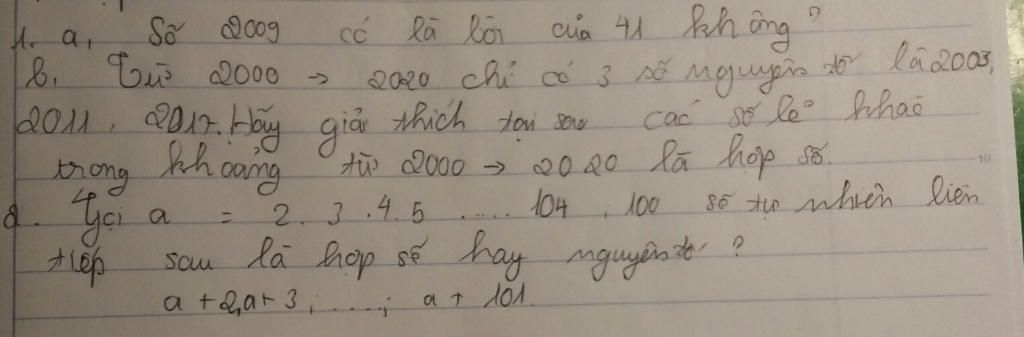 1. a, Số 2009 có là bội của 41 không?
b, Từ 2000 → 2020 chỉ có 3 số nguyên tố là 2003,
2011, 2017. Hãy giải thích tại sao các số lẻ khác
trong khoảng từ 2000 → 2020 là hợp số.
2. Gọi a = 2.3.4.5.....104, 100 số tự nhiên liên
tiếp sau là hợp số hay nguyên tố?
a+2,a+3;.....; a + 101